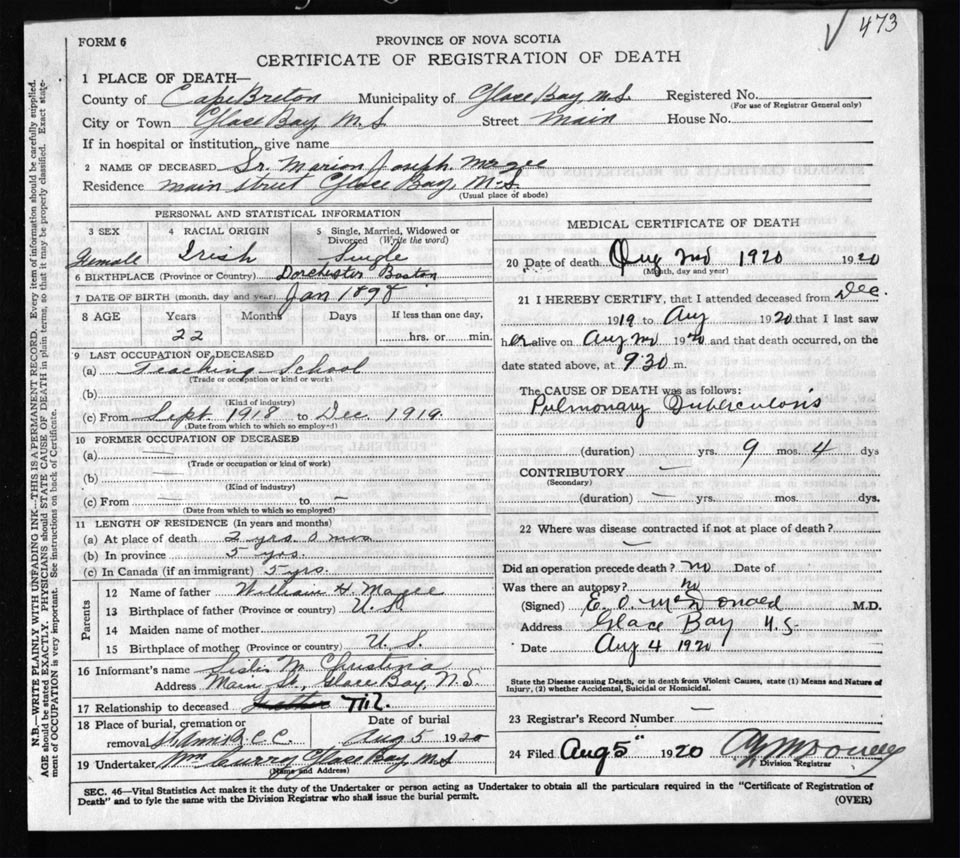 473
FORM 6
PROVINCE OF NOVA SCOTIA
CERTIFICATE OF REGISTRATION OF DEATH
N.B.—WRITE PLAINLY WITH UNFADING INK—THIS IS A PERMANENT RECORD. Every item of information should be carefully supplied.
AGE should be stated EXACTLY. PHYSICIANS should STATE CAUSE OF DEATH in plain terms, so that it may be properly classified. Exact state-
ment of OCCUPATION is very important. See instructions on back of Certificate.
1 PLACE OF DEATH—
County of Cape Breton Municipality of Glace Bay, N.S. Registered No.
(For use of Registrar General only)
City or Town Glace Bay, N.S Street Main House No.
If in hospital or institution, give name
2 NAME OF DECEASED Sr. Marion Joseph. Magee
Residence Main Street Glace Bay, N.S.
(Usual place of abode)
PERSONAL AND STATISTICAL INFORMATION
3 SEX 4 RACIAL ORIGIN 5 Single, Married, Widowed or
Divorced (Write the word)
Female Irish Single
6 BIRTHPLACE (Province or Country) Dorchester Boston
7 DATE OF BIRTH (month, day and year) Jan 1898
8 AGE Years Months Days If less than one day,
22 hrs. or min.
9 LAST OCCUPATION OF DECEASED
(a) Teaching School
(Trade or occupation or kind or work)
(b)
(Kind of industry)
(c) From Sept 1918 to Dec. 1919
(Date from which to which so employed)
10 FORMER OCCUPATION OF DECEASED
(a) —
(Trade or occupation or kind of work)
(b) —
(Kind of industry)
(c) From — to —
(Date from which to which so employed)
11 LENGTH OF RESIDENCE (In years and months)
(a) At place of death 2 yrs. 0 mos
(b) In province 5 yrs.
(c) In Canada (if an immigrant) 5 yrs.
Parents
12 Name of father William H. Magee
13 Birthplace of father (Province or country) U.S.
14 Maiden name of mother
15 Birthplace of mother (Province or country) U.S.
16 Informant's name Sister M. Christina
Address Main St., Glace Bay, N.S.
17 Relationship to deceased Nil.
18 Place of burial, cremation or Date of burial
removal St. Anns R.C.C. Aug 5 1920
19 Undertaker Wm Curry Glace Bay, N.S
(Name and Address)
MEDICAL CERTIFICATE OF DEATH
20 Date of death Aug 1920 1920
(Month, day and year)
21 I HEREBY CERTIFY, that I attended deceased from Dec.
1919 to Aug 1920 that I last saw
her alive on Aug 1920 and that death occurred, on the
date stated above, at 9.30 m.
The CAUSE OF DEATH was as follows:
Pulmonary Tuberculosis
(duration) yrs. 9 mos. 4 dys
CONTRIBUTORY —
(Secondary)
(duration) — yrs. mos. dys.
22 Where was disease contracted if not at place of death?
—
Did an operation precede death? no Date of
Was there an autopsy? no
(Signed) E. O. McDonald M.D.
Address Glace Bay N.S
Date Aug 4 1920
State the Disease causing Death, or in death from Violent Causes, state (1) Means and Nature of
Injury, (2) whether Accidental, Suicidal or Homicidal.
23 Registrar's Record Number —
24 Filed Aug 5" 1920
Division Registrar
SEC. 46—Vital Statistics Act makes it the duty of the Undertaker or person acting as Undertaker to obtain all the particulars required in the "Certificate of Registration of
Death" and to fyle the same with the Division Registrar who shall issue the burial permit.
(OVER)